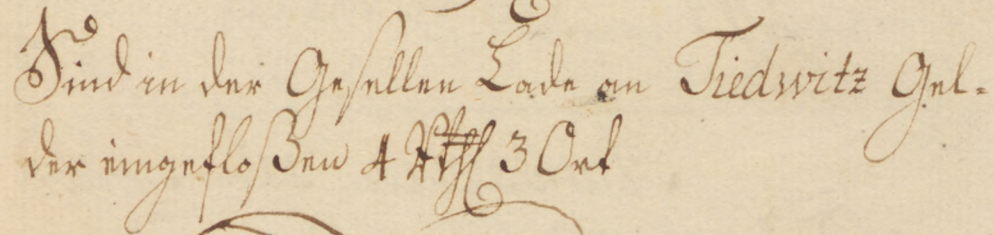 Sind in der Gesellen Lade an Tiedwitz Gel-
der eingefloßen 4 Rthl 3 Ort